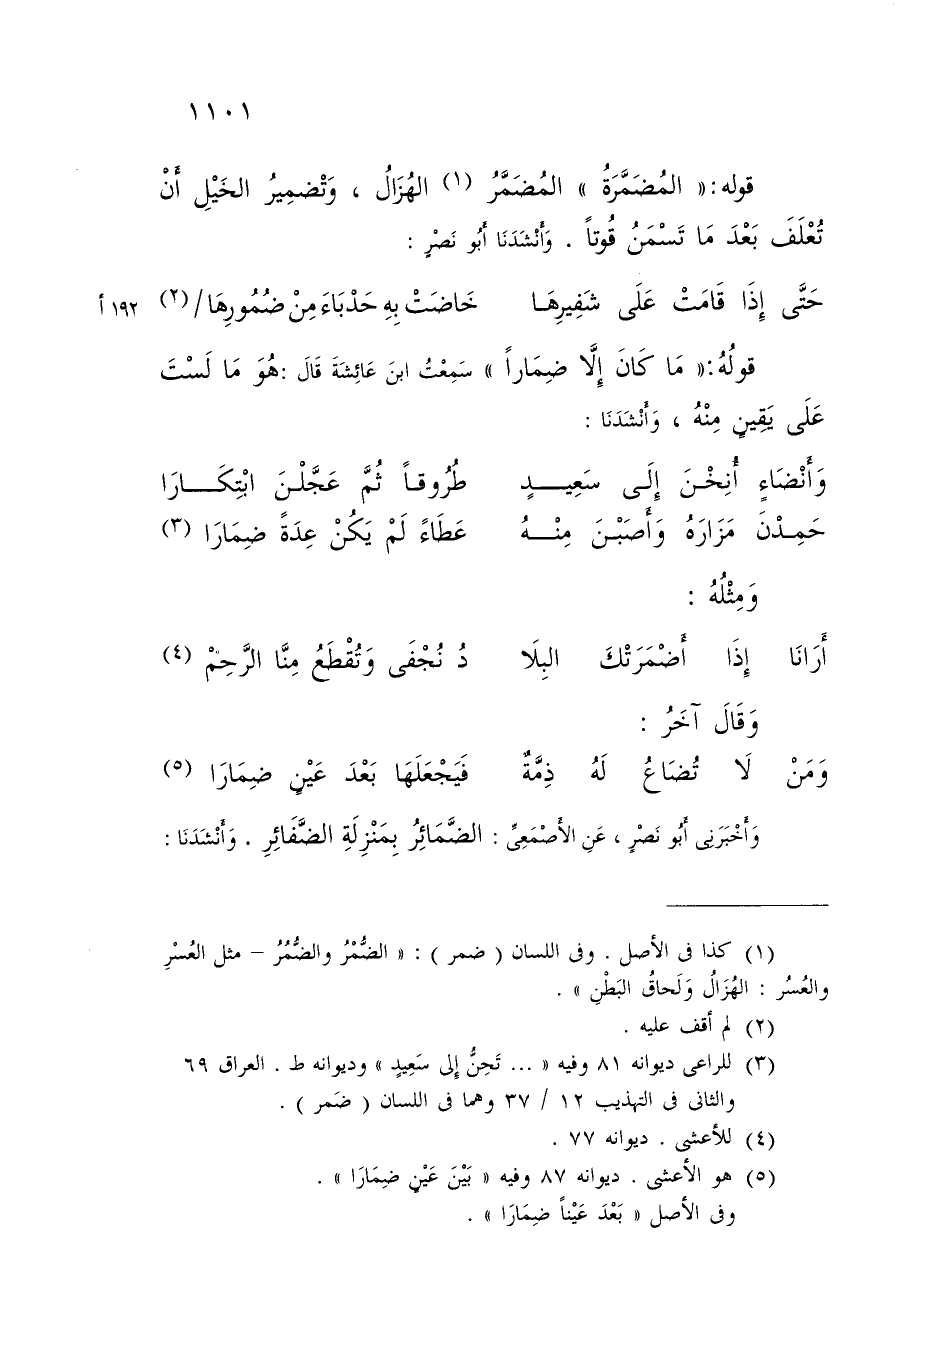 ١١٠١
قوله : « المُضَمَّرَةُ » المُضَمَّرُ (١) الهُزَالُ ، وَتْضمِيرُ الخَيْلِ أَنْ
تُعْلَفَ بَعْدَ مَا تَسْمَنُ قُوتاً . وَأَنْشَدَنَا أَبُو نَصْرٍ :
حَتَّى إِذَا قَامَتْ عَلَى شَفِيرِهَا خَاضَتْ بِهِ حَدْبَاءَ مِنْ ضُمُورِهَا / (٢) ١٩٢ أ
قولُهُ : « مَا كَانَ إِلَّا ضِمَاراً » سَمِعْتُ ابنَ عَائِشَةَ قَالَ : هُوَ مَا لَسْتَ
عَلَى يَقِينٍ مِنْهُ ، وَأَنْشَدَنَا :
وَأَنْضَاءٍ أُنِخْنَ إِلَى سَعِيدٍ طُرُوقاً ثُمَّ عَجَّلْنَ ابْتِكَارَا
حَمِدْنَ مَزَارَهُ وَأَصَبْنَ مِنْهُ عَطَاءً لَمْ يَكُنْ عِدَةً ضِمَارَا (٣)
وَمِثْلُهُ :
أَرَانَا إِذَا أَضْمَرَتْكَ البِلَا دُ نُجْفَى وَتُقْطَعُ مِنَّا الرَّحِمْ (٤)
وَقَالَ آخَرُ :
وَمَنْ لَا تُضَاعُ لَهُ ذِمَّةٌ فَيَجْعَلَهَا بَعْدَ عَيْنٍ ضِمَارَا (٥)
وَأَخْبَرَنِى أَبُو نَصْرٍ ، عَنِ الأَصْمَعِىِّ : الضَّمَائِرُ بِمَنْزِلَةِ الضَّفَائِرِ . وَأَنْشَدَنَا :
(١) كذا فى الأصل . وفى اللسان ( ضمر ) : « الضُّمْرُ والضُّمُرُ – مثل العُسْرِ
والعُسُر : الهُزَالُ وَلَحاقُ البَطْنِ » .
(٢) لم أقف عليه .
(٣) للراعى ديوانه ٨١ وفيه « ... تَحِنُّ إلى سَعِيدٍ » وديوانه ط . العراق ٦٩
والثانى فى التهذيب ١٢ / ٣٧ وهما فى اللسان ( ضَمر ) .
(٤) للأعشى . ديوانه ٧٧ .
(٥) هو الأعشى . ديوانه ٨٧ وفيه « بَيْنَ عَيْنٍ ضِمَارَا » .
وفى الأصل « بَعْدَ عَيْناً ضِمَارَا » .